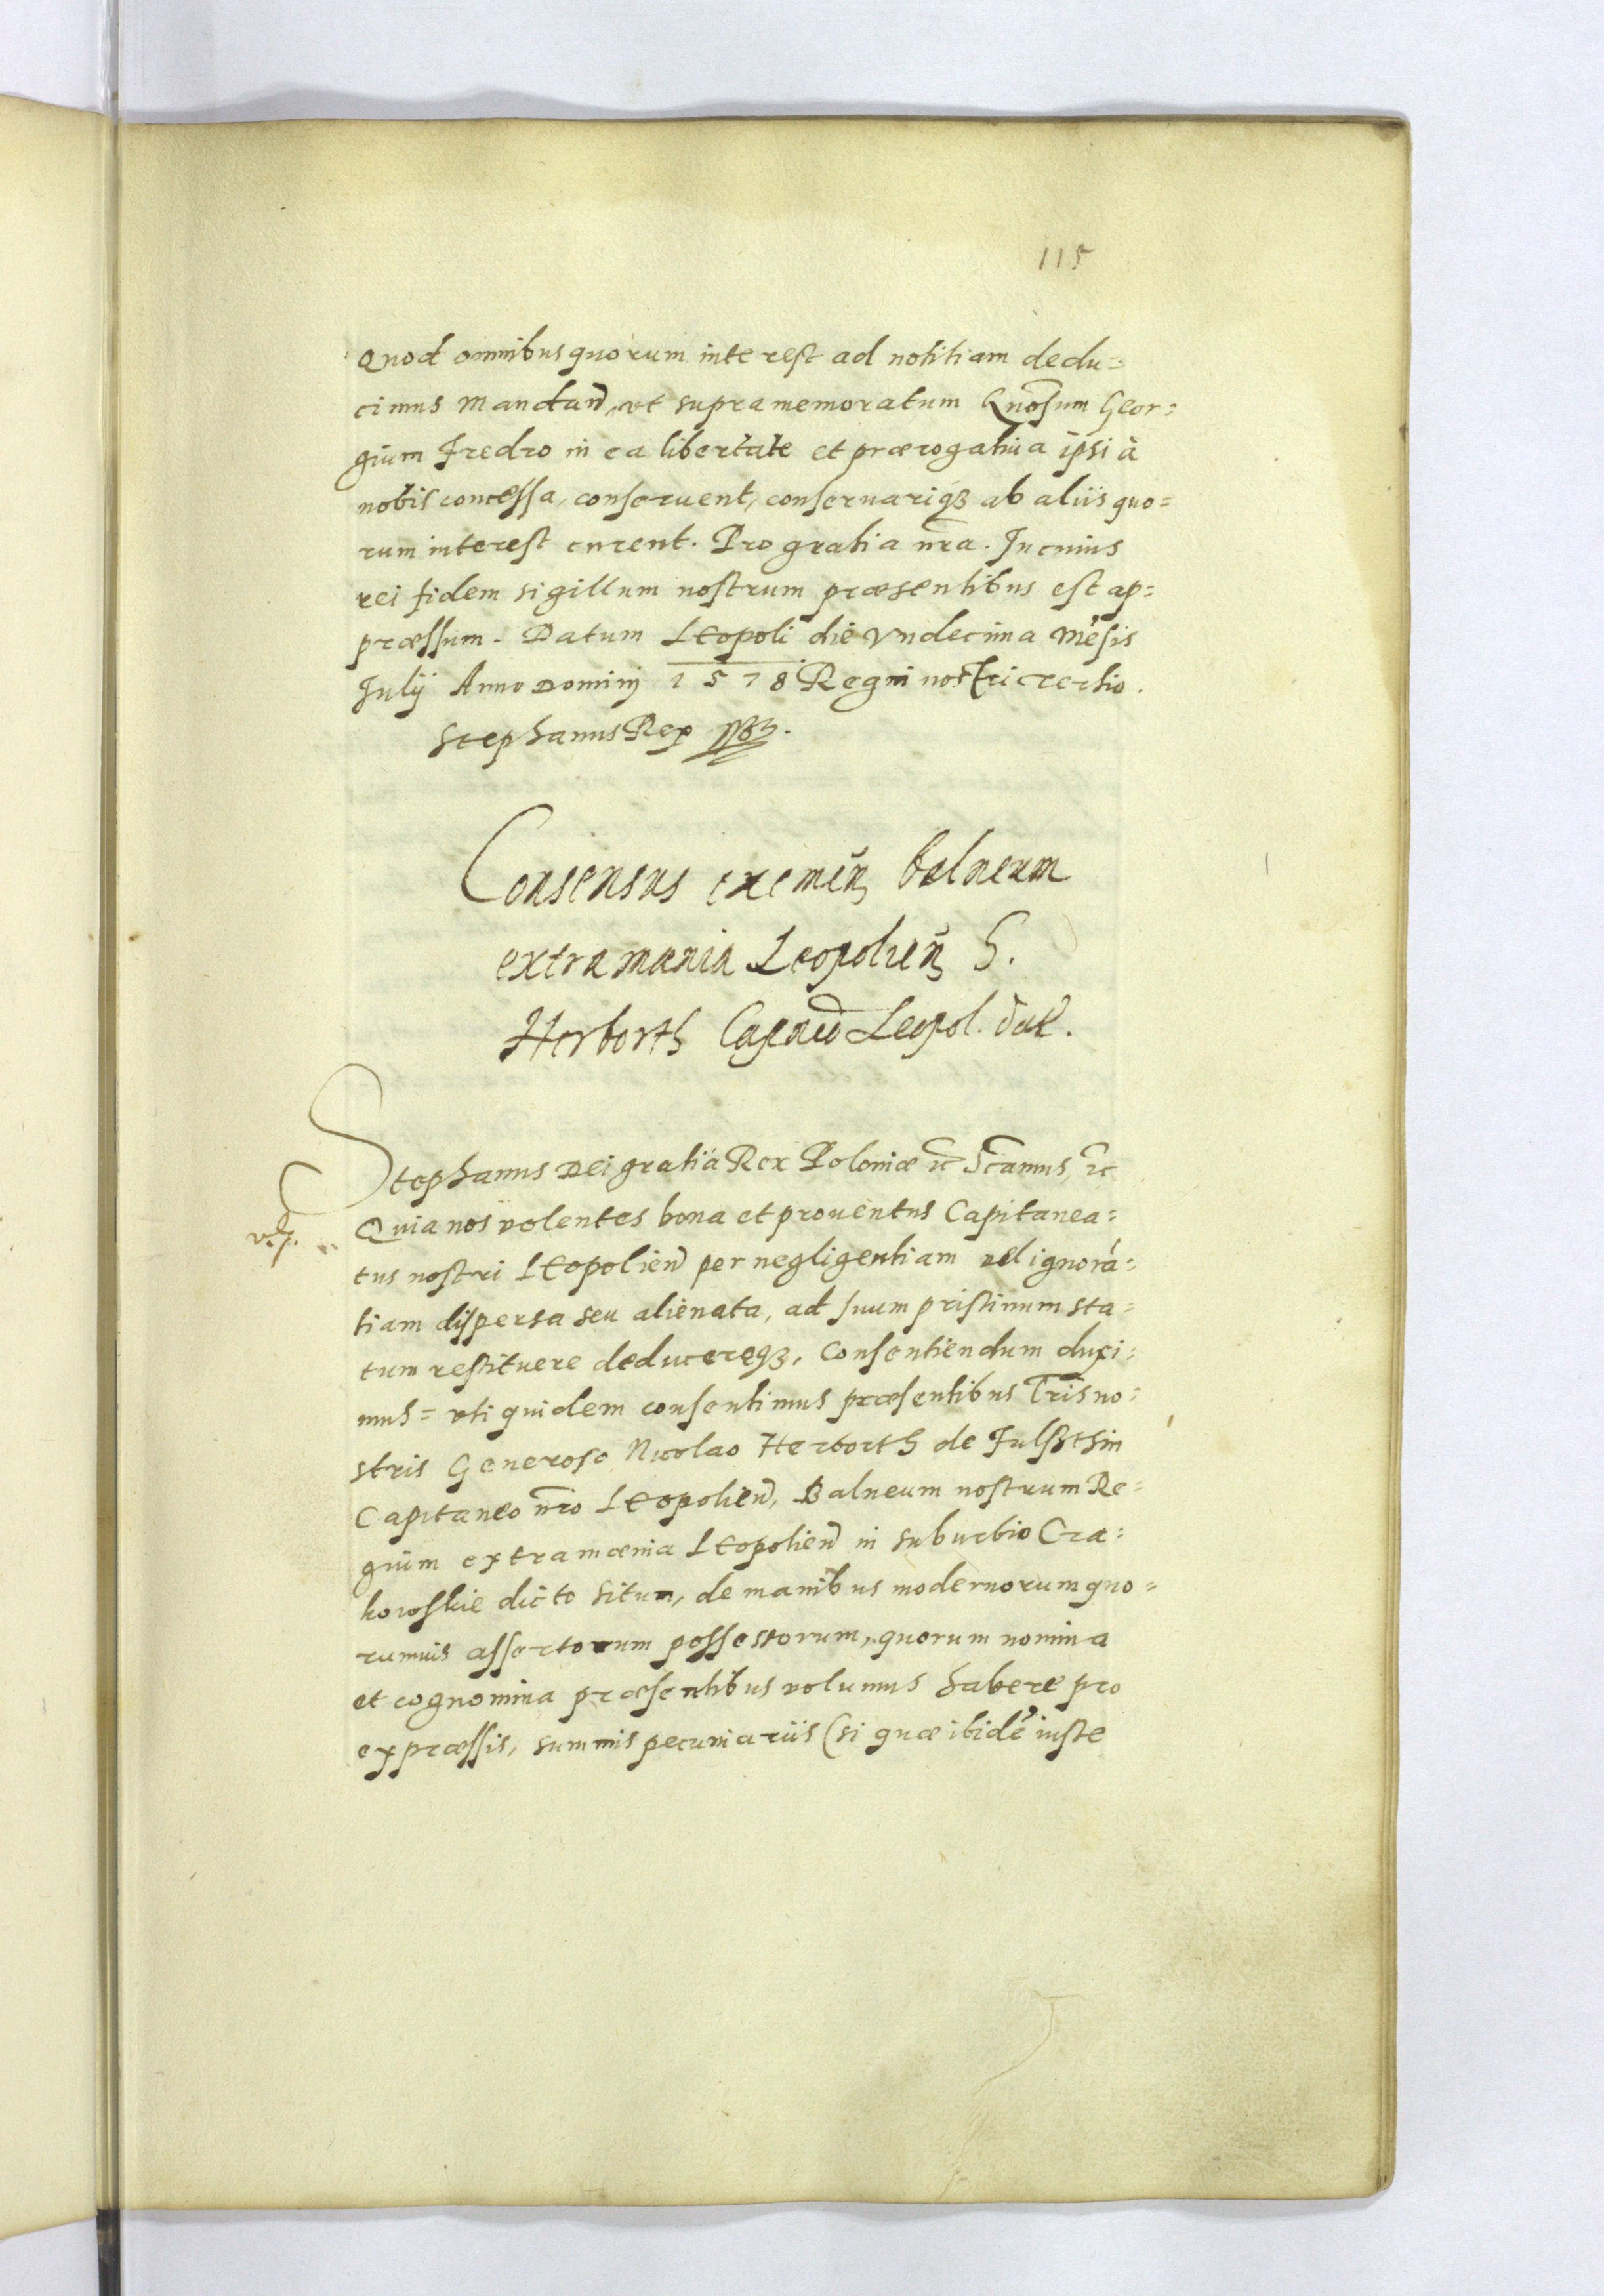 115
Quod omnibus quorum interest ad notitiam dedu=
cimus Mandan̄, ut supra memoratum Gn̄osum Geor=
gium Fredro in ea libertate et prærogatiua ipsi à
nobis concessa, conseruent, conseruariqȝ ab aliis quo=
rum interest curent. Pro gratia nr̄a. In cuius
rei fidem sigillum nostrum præsentibus est ap=
præssum. Datum Leopoli die Vndecima Mēsis
Julij Anno Dominj 1578 Regni nostri tertio.
Stephanus Rex
Consensus eximen̄ balneum
extra mænia Leopolien̄ G.
Herborth Capneo Leopol. dat.
Stephanus Dei gratia Rex Poloniæ etc̄ Sc̄amus, etc̄
Quia nos volentes bona et prouentus Capitanea=
tus nostri Leopolien̄ per negligentiam vel ignorā=
tiam dispersa seu alienata, ad suum pristinum sta=
tum restituere deducereqȝ, Consentiendum duxi=
mus= uti quidem consentimus præsentibus Lr̄is no=
stris Generoso Nicolao Herborth de Fulsthin
Capitaneo nr̄o Leopolien̄, Balneum nostrum Re=
gium extra mœnia Leopolien̄ in suburbio Cra=
koroskie dicto situm, de manibus modernorum quo=
rumuis assertorum possessorum, quorum nomina
et cognomina præsentibus volumus habere pro
expræssis, summis pecuniariis (si quæ ibidē iuste